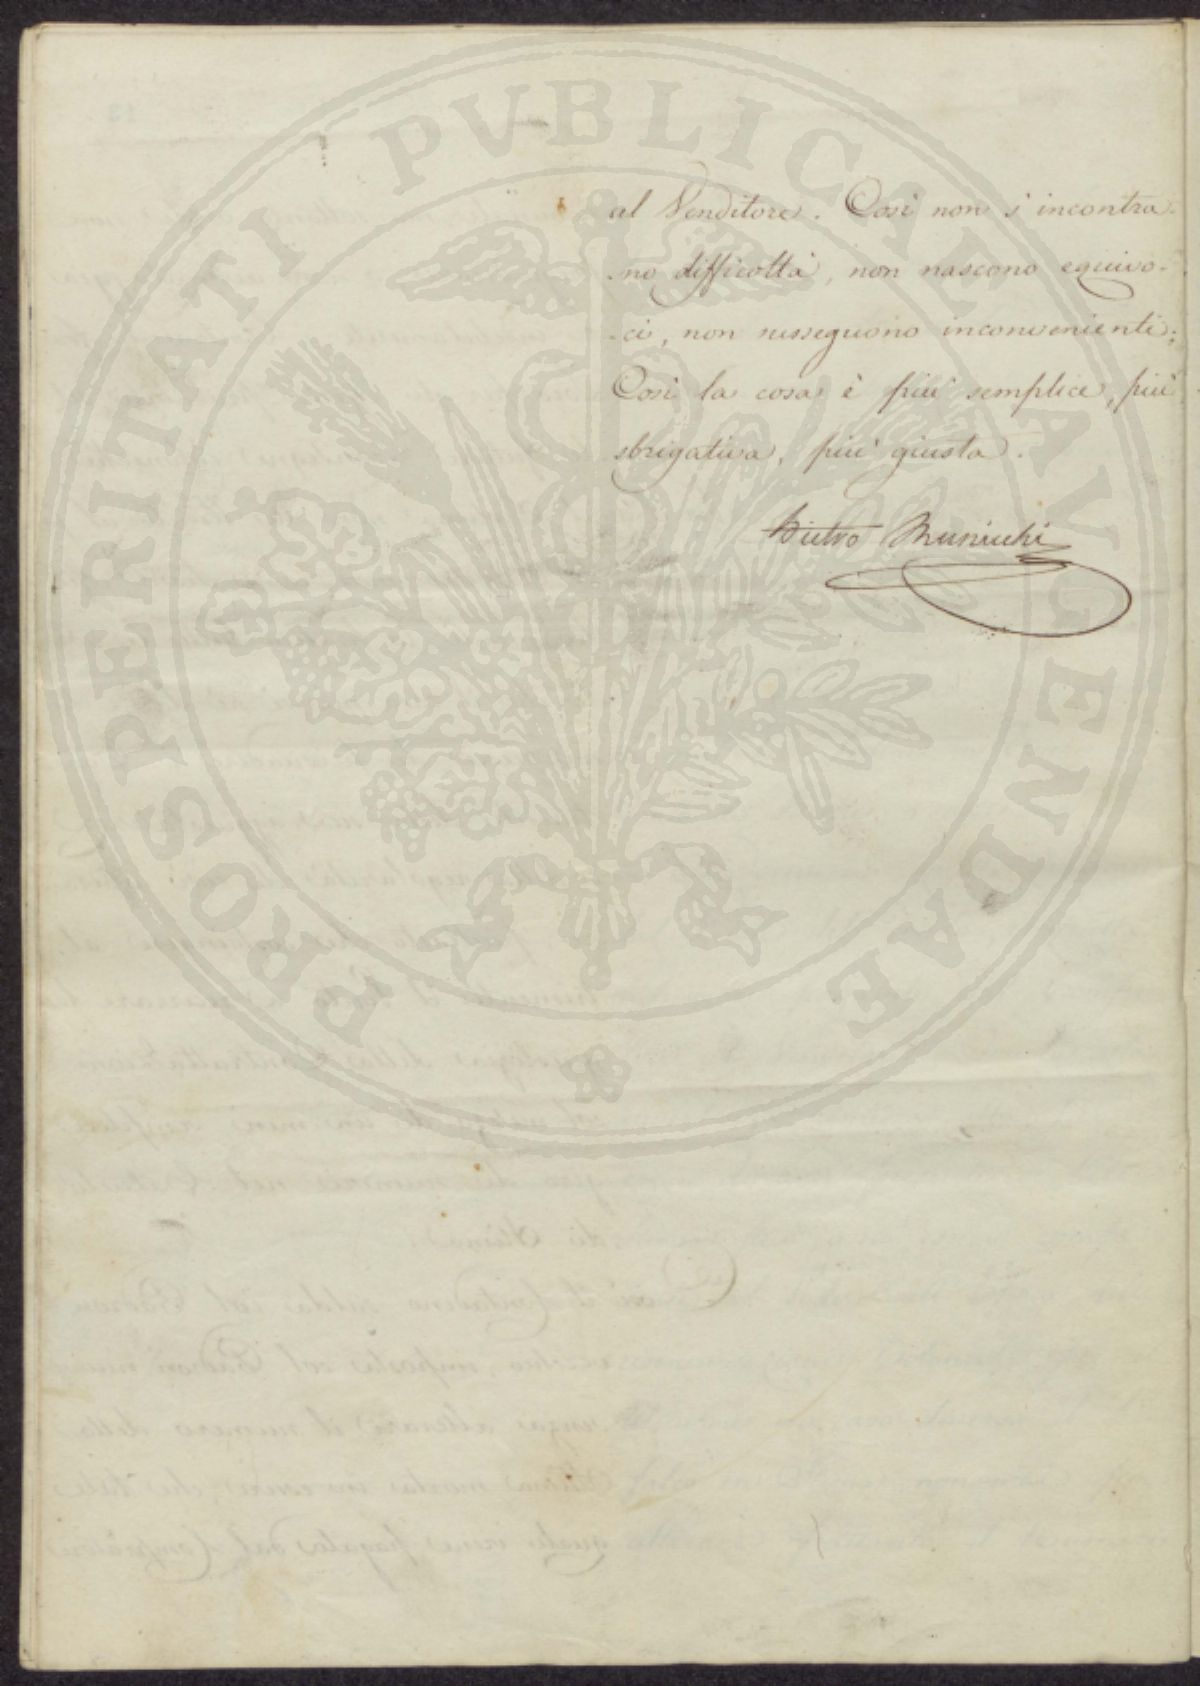 PROSPERITATI PVBLICAE AVGENDAE
al Venditore. Così non s'incontra-
-no difficoltà, non nascono equivo-
-ci, non susseguono inconvenienti;
Così la cosa è più semplice, più
sbrigativa, più giusta.
Pietro